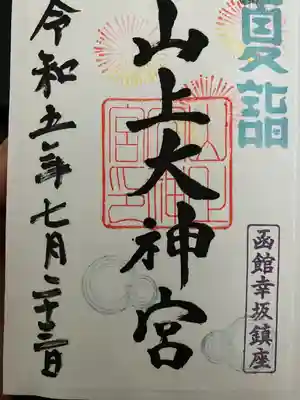 夏詣
函館幸坂鎮座
山上大神宮
令和五年七月二十三日